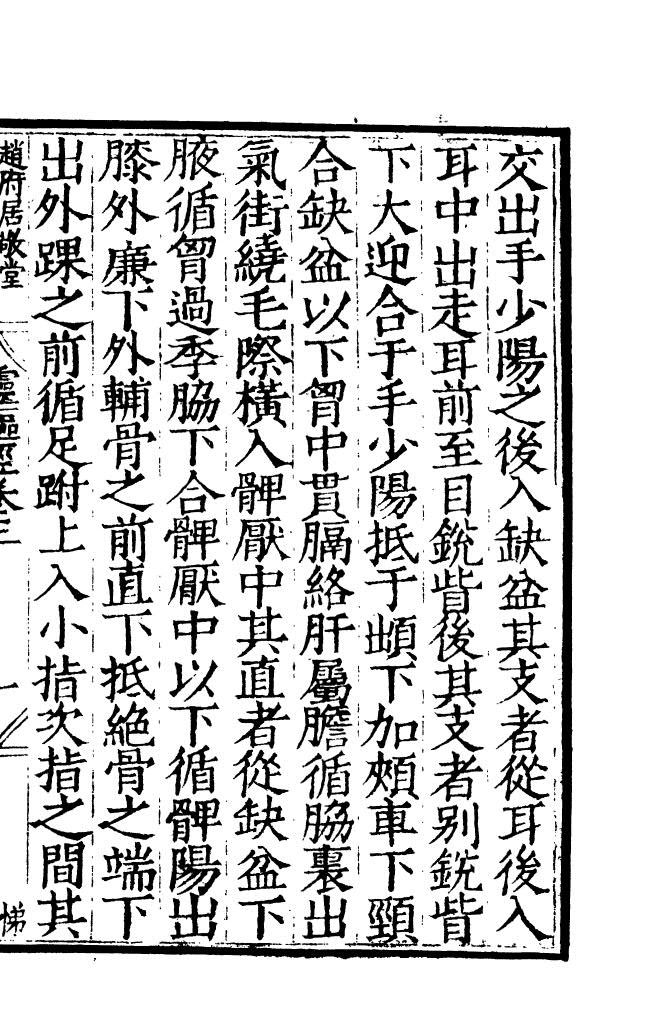 交出手少陽之後入缺盆其支者從耳後入
耳中出走耳前至目銳眥後其支者别銳眥
下大迎合于手少陽抵于䪼下加頰車下頸
合缺盆以下胷中貫膈絡肝屬膽循脇裏出
氣街繞毛際橫入髀厭中其直者從缺盆下
腋循胷過季脇下合髀厭中以下循髀陽出
膝外廉下外輔骨之前直下抵絕骨之端下
出外踝之前循足跗上入小指次指之間其
趙府居敬堂 靈樞經卷三 悌